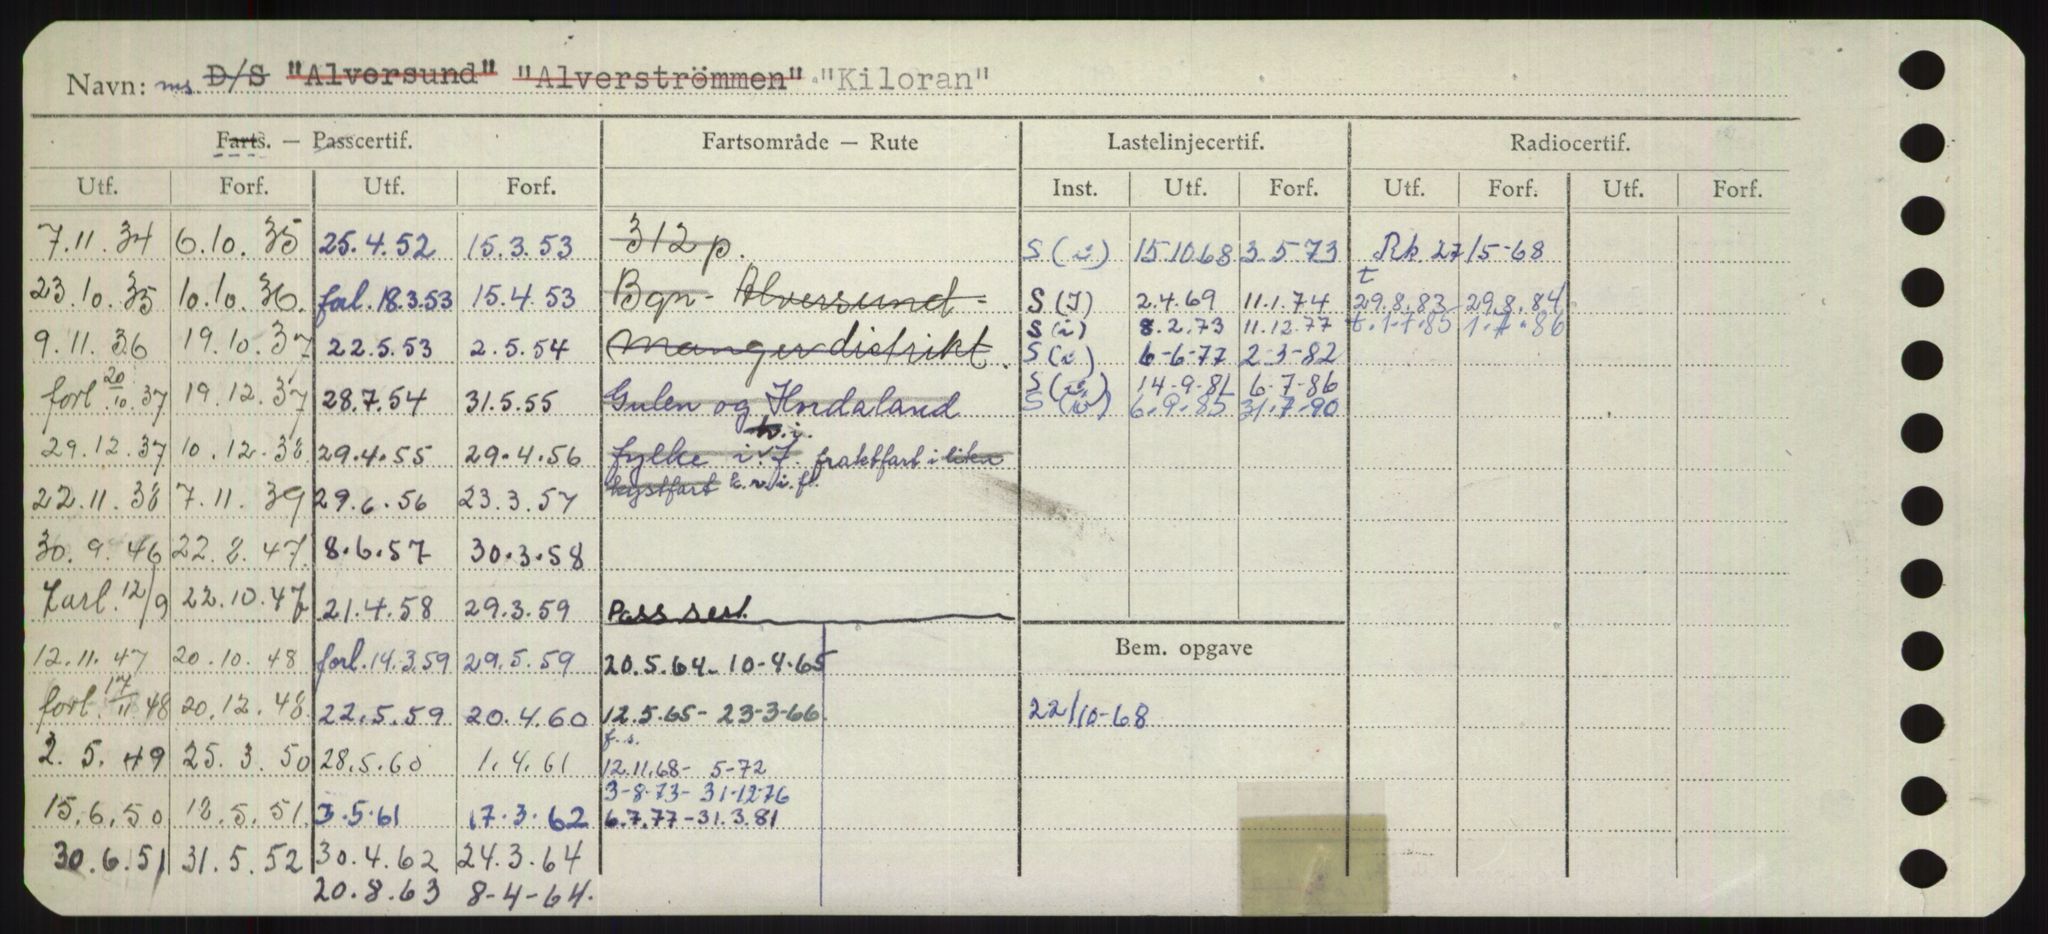 Navn: ms. D/S "Alversund" "Alverströmmen" "Kiloran"
Farts. — Passcertif. Fartsområde — Rute Lastelinjecertif. Radiocertif.
Utf. Forf. Utf. Forf. Inst. Utf. Forf. Utf. Forf. Utf. Forf.
7.11.34 6.10.35 25.4.52 15.3.53 312 p. S (i) 15.10.68 3.5.73 Rk 27/5-68
23.10.35 10.10.36. forl. 18.3.53 15.4.53 Bgn - Alversund - S (I) 2.4.69 11.1.74 t 29.8.83 29.8.84
S (i) 8.2.73 11.12.77 t. 1.7.85 1.7.86
9.11.36 19.10.37 22.5.53 2.5.54 Manger distrikt. S (i) 6-6-77 2-3-82
forl. 20/10.37 19.12.37 28.7.54 31.5.55 Gulen og Hordaland S (i) 14-9-81 6-7-86
S (i) 6.9.85 31.7.90
29.12.37 10.12.38 29.4.55 29.4.56 fylke i.f. fraktfart i liten
22.11.38 7.11.39 29.6.56 23.3.57 kystfart k.v.i.f.
30.9.46 22.8.47. 8.6.57 30.3.58
Forl. 12/9 22.10.47 21.4.58 29.3.59 Pass sert.
12.11.47 20.10.48 forl. 14.3.59 29.5.59 20.5.64 - 10-4-65 Bem. opgave
forl. 17/11 48 20.12.48 22.5.59 20.4.60 12.5.65 - 23-3-66. 22/10-68
f.s.
2.5.49 25.3.50 28.5.60 1.4.61 12.11.68 - 5-72
3-8-73 - 31-12-76
15.6.50 18.5.51. 3.5.61 17.3.62 6.7.77 - 31.3.81
30.6.51 31.5.52 30.4.62 24.3.64
20.8.63 8-4-64.